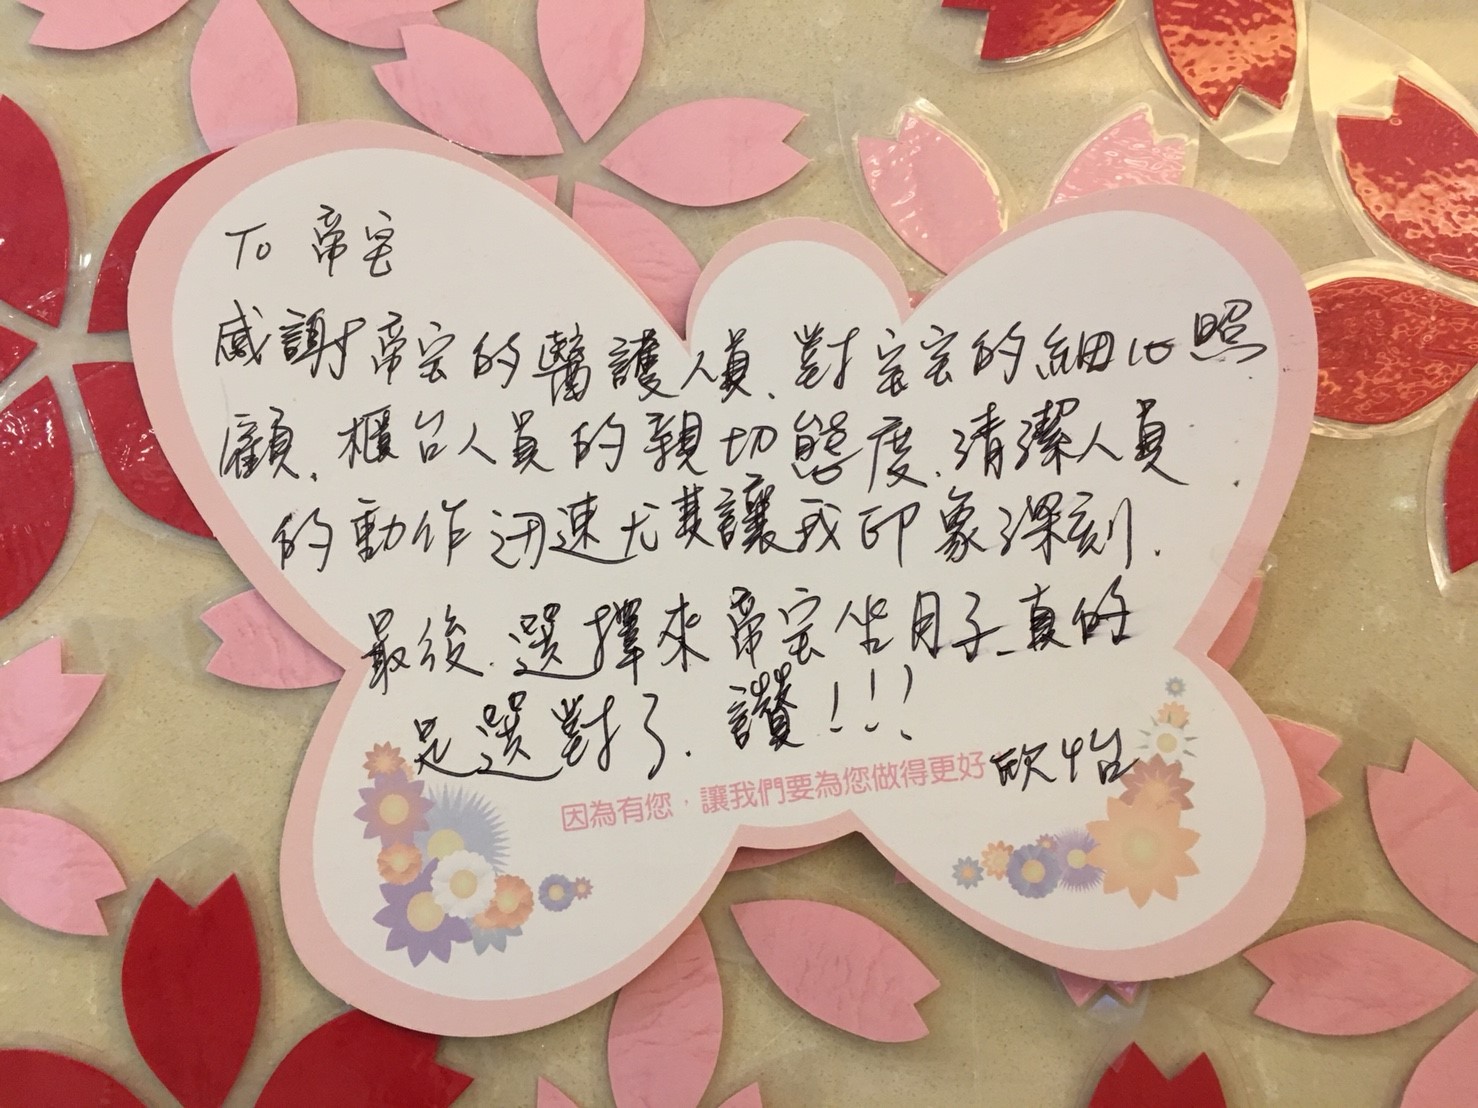 To 帝宝
感謝帝宝的醫護人員、對宝宝的細心照
顧、櫃台人員的親切態度、清潔人員
的動作迅速尤其讓我印象深刻.
最後、選擇來帝宝坐月子、真的
是選對了、讚!!!
欣怡
因為有您，讓我們要為您做得更好